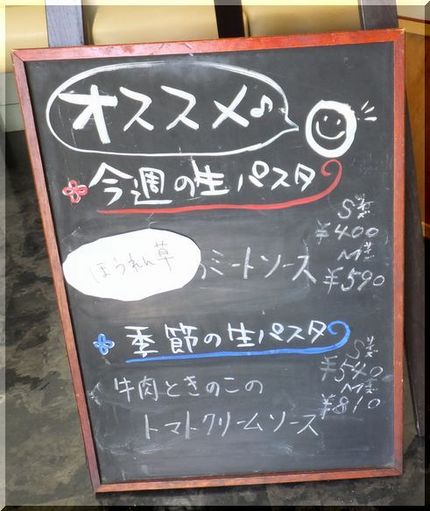 オススメ♪
今週の生パスタ
S
¥400
ほうれん草
のミートソース
M
¥590
季節の生パスタ
S
¥540
牛肉ときのこの
M
¥810
トマトクリームソース